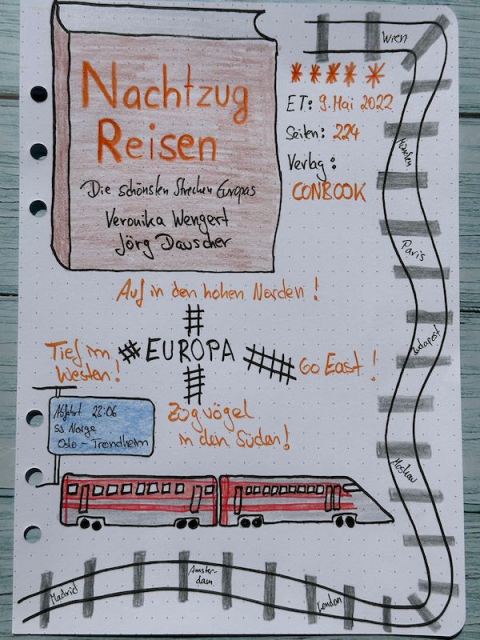 Nachtzug
Reisen
Die schönsten Strecken Europas
Veronika Wengert
Jörg Dauscher
ET: 9. Mai 2022
Seiten: 224
Verlag:
CONBOOK
Auf in den hohen Norden!
Tief im
Westen!
EUROPA
Go East!
Zugvögel
in den Süden!
Abfahrt 23:06
SJ Norge
Oslo - Trondheim
Wien
München
Paris
Budapest
Moskau
London
Amster-
dam
Madrid